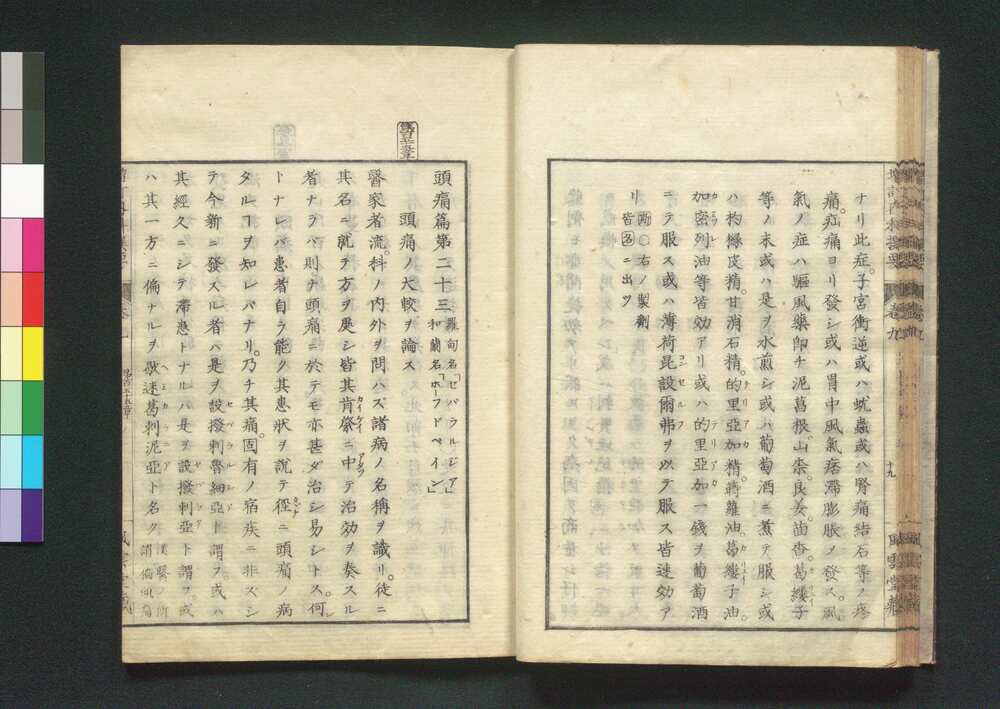 ナリ此症。子宮衝逆或ハ蚘蟲或ハ腎痛結石等ノ疼
痛。疝痛ヨリ發シ或ハ胃中風氣痞滯膨脹ノ發ス。風
氣ノ症ハ驅風藥即チ泥菖根。山柰。良姜。茴香。葛縷子
等ノ末或ハ是ヲ水煎シ或ハ葡萄酒ニ煮テ服シ或
ハ枸櫞皮精。甘消石精。的里亞加精。蒔蘿油。葛縷子油。
加密列油等皆効アリ或ハ的里亞加一錢ヲ葡萄酒
ニテ服ス或ハ薄荷昆設爾弗ヲ以テ服ス皆速効ア
リ 右ノ製劑皆名ニ出ヅ
十九
風雲堂藏
頭痛篇第二十三 羅甸名「セパラルジア」和蘭名「ホーフドペイン」
頭痛ノ大較ヲ論ス
醫家者流。科ノ内外ヲ問ハズ諸病ノ名稱ヲ識リ。徒ニ
其名ニ就テ方ヲ處シ皆其肯綮ニ中テ治効ヲ奏スル
者ナラバ則チ頭痛ニ於テモ亦甚ダ治シ易シトス。何
トナレバ患者自ラ能ク其患狀ヲ說テ徑ニ頭痛ノ病
タルヿヲ知レバナリ。乃チ其痛。固有ノ宿疾ニ非ズシ
テ今新ニ發スル者ハ是ヲ設撥剌魯細亞ト謂フ。或ハ
其經久ニシテ滯患トナルハ是ヲ設撥剌亞ト謂フ或
ハ其一方ニ偏ナルヲ歇迷葛剌泥亞ト名ク 漢醫ノ所謂偏頭痛